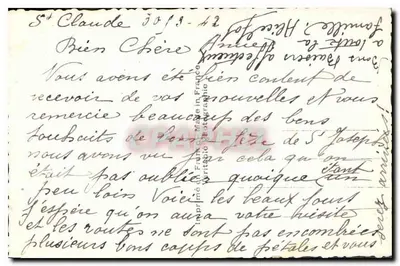 St Claude 30/3-42
Bien Chère Amie
Nous avons été bien content de
recevoir de vos nouvelles et vous
remercie beaucoup des bons
souhaits de bonne fête de St Joseph
nous avons vu par cela qu'on
était pas oublié quoique tant
peu loin Voici les beaux jours
j'espère qu'on aura votre visite
et les routes ne sont pas encombrées
plusieurs bons coups de pédales et vous
serez arrivés
Bons Baisers affectueux
a toute la
famille Alice